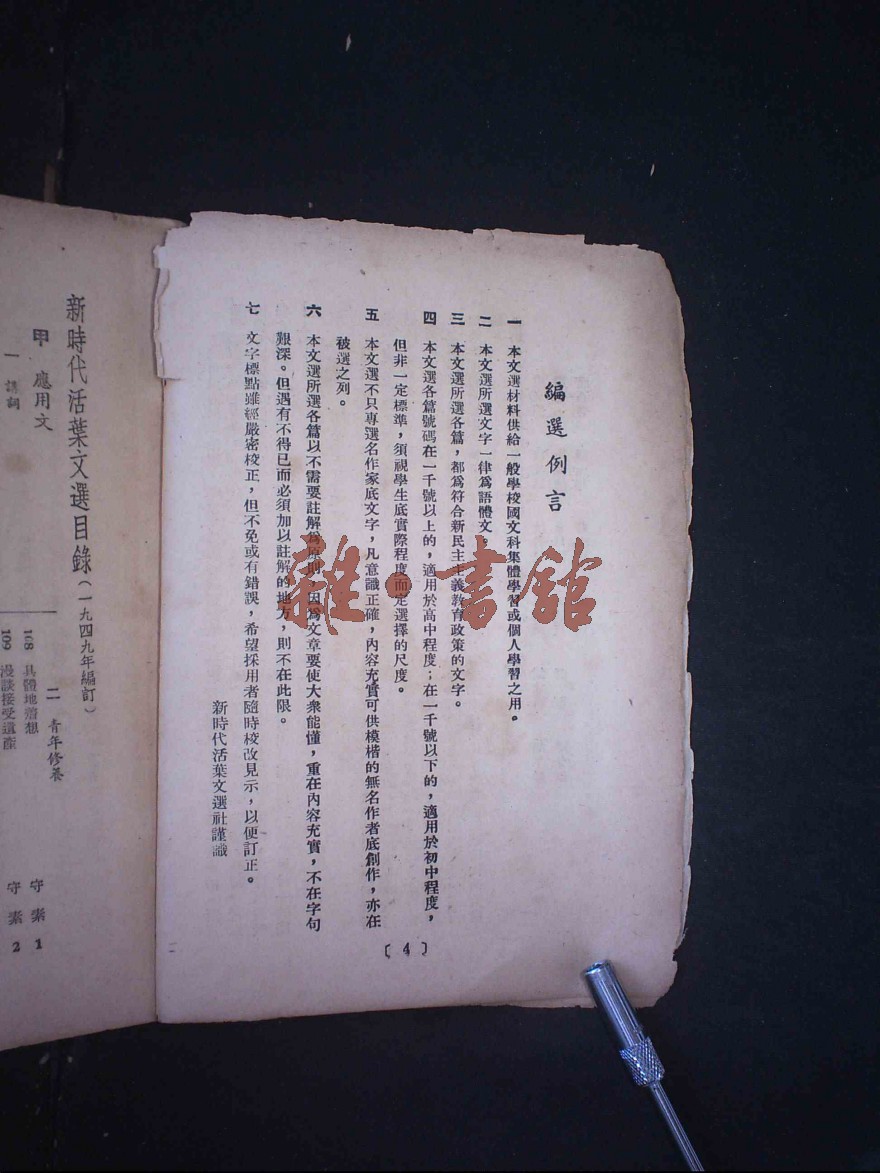 編選例言
一 本文選材料供給一般學校國文科集體學習或個人學習之用。
二 本文選所選文字一律爲語體文。
三 本文選所選各篇，都爲符合新民主主義教育政策的文字。
四 本文選各篇號碼在一千號以上的，適用於高中程度；在一千號以下的，適用於初中程度，
但非一定標準，須視學生底實際程度而定選擇的尺度。
五 本文選不只專選名作家底文字，凡意識正確，內容充實可供模楷的無名作者底創作，亦在
被選之列。
六 本文選所選各篇以不需要註解爲原則，因爲文章要使大衆能懂，重在內容充實，不在字句
艱深。但遇有不得已而必須加以註解的地方，則不在此限。
七 文字標點雖經嚴密校正，但不免或有錯誤，希望採用者隨時校改見示，以便訂正。
新時代活葉文選社謹識
〔4〕
雜·書館
新時代活葉文選目錄（一九四九年編訂）
甲 應用文
一 講詞
二 青年修養
108 具體地着想 守素 1
109 漫談接受遺產 守素 2